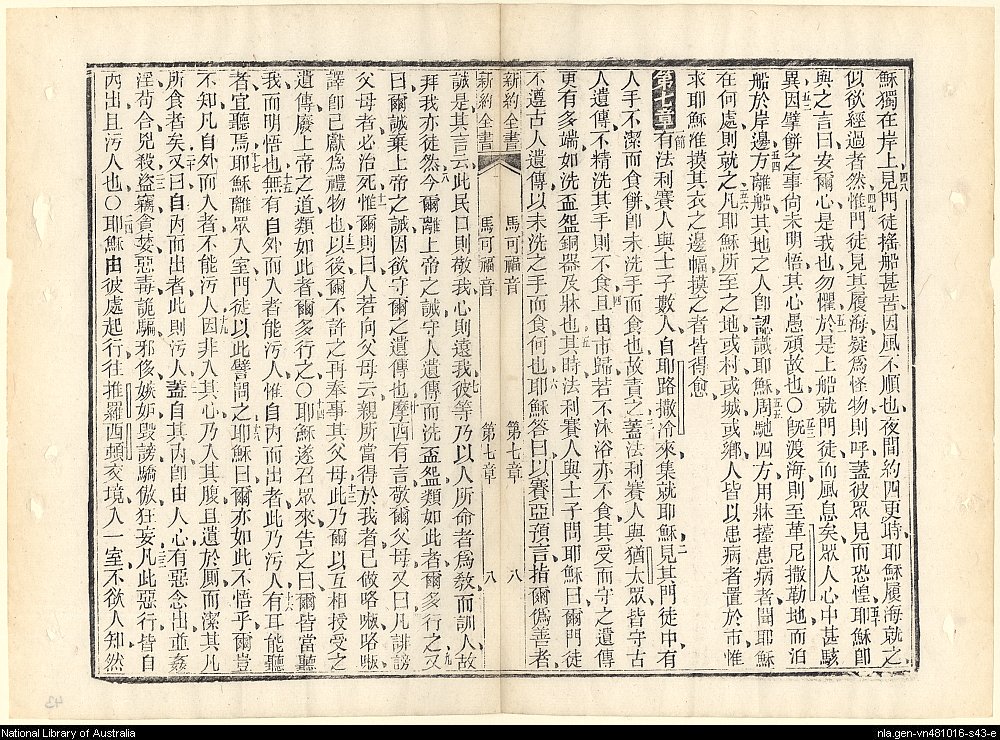 穌獨在岸上見門徒搖船甚苦因風不順也夜間約四更時耶穌履海就之
似欲經過者然惟門徒見其履海疑為怪物則呼蓋彼眾見而恐惶耶穌即
與之言曰安爾心是我也勿懼於是上船就門徒而風息矣眾人心中甚駭
異因擘餅之事尚未明悟其心愚頑故也〇既渡海則至革尼撒勒地而泊
船於岸邊方離船其地之人即認識耶穌周馳四方用牀擡患病者聞耶穌
在何處則就之凡耶穌所至之地或村或城或鄉人皆以患病者置於市惟
求耶穌准摸其衣之邊幅摸之者皆得愈
第七章有法利賽人與士子數人自耶路撒冷來集就耶穌見其門徒中有
人手不潔而食餅即未洗手而食也故責之蓋法利賽人與猶太眾皆守古
人遺傳不精洗其手則不食且由市歸若不沐浴亦不食其受而守之遺傳
更有多端如洗盃盌銅器及牀也其時法利賽人與士子問耶穌曰爾門徒
不遵古人遺傳以未洗之手而食何也耶穌答曰以賽亞預言指爾偽善者
新約全書 馬可福音 第七章 八
新約全書 馬可福音 第七章 八
誠是其言云此民口則敬我心則遠我彼等乃以人所命者為教而訓人故
拜我亦徒然今爾離上帝之誡守人遺傳而洗盃盌類如此者爾多行之又
曰爾誠棄上帝之誡因欲守爾之遺傳也摩西有言敬爾父母又曰凡誹謗
父母者必治死惟爾則曰人若向父母云親所當得於我者已做咯㘉咯㘉
譯即已獻為禮物也以後爾不許之再奉事其父母此乃爾以互相授受之
遺傳廢上帝之道類如此者爾多行之〇耶穌遂召眾來告之曰爾皆當聽
我而明悟也無有自外而入者能污人惟自內而出者此乃污人有耳能聽
者宜聽焉耶穌離眾入室門徒以此譬問之耶穌曰爾亦如此不悟乎爾豈
不知凡自外而入者不能污人因非入其心乃入其腹且遺於厠而潔其凡
所食者矣又曰自內而出者此則污人蓋自其內即由人心有惡念出並姦
淫苟合兇殺盜竊貪婪惡毒詭騙邪侈嫉妬毀謗驕傲狂妄凡此惡行皆自
內出且污人也〇耶穌由彼處起行往推羅西頓交境入一室不欲人知然
43
National Library of Australia
nla.gen-vn481016-s43-e